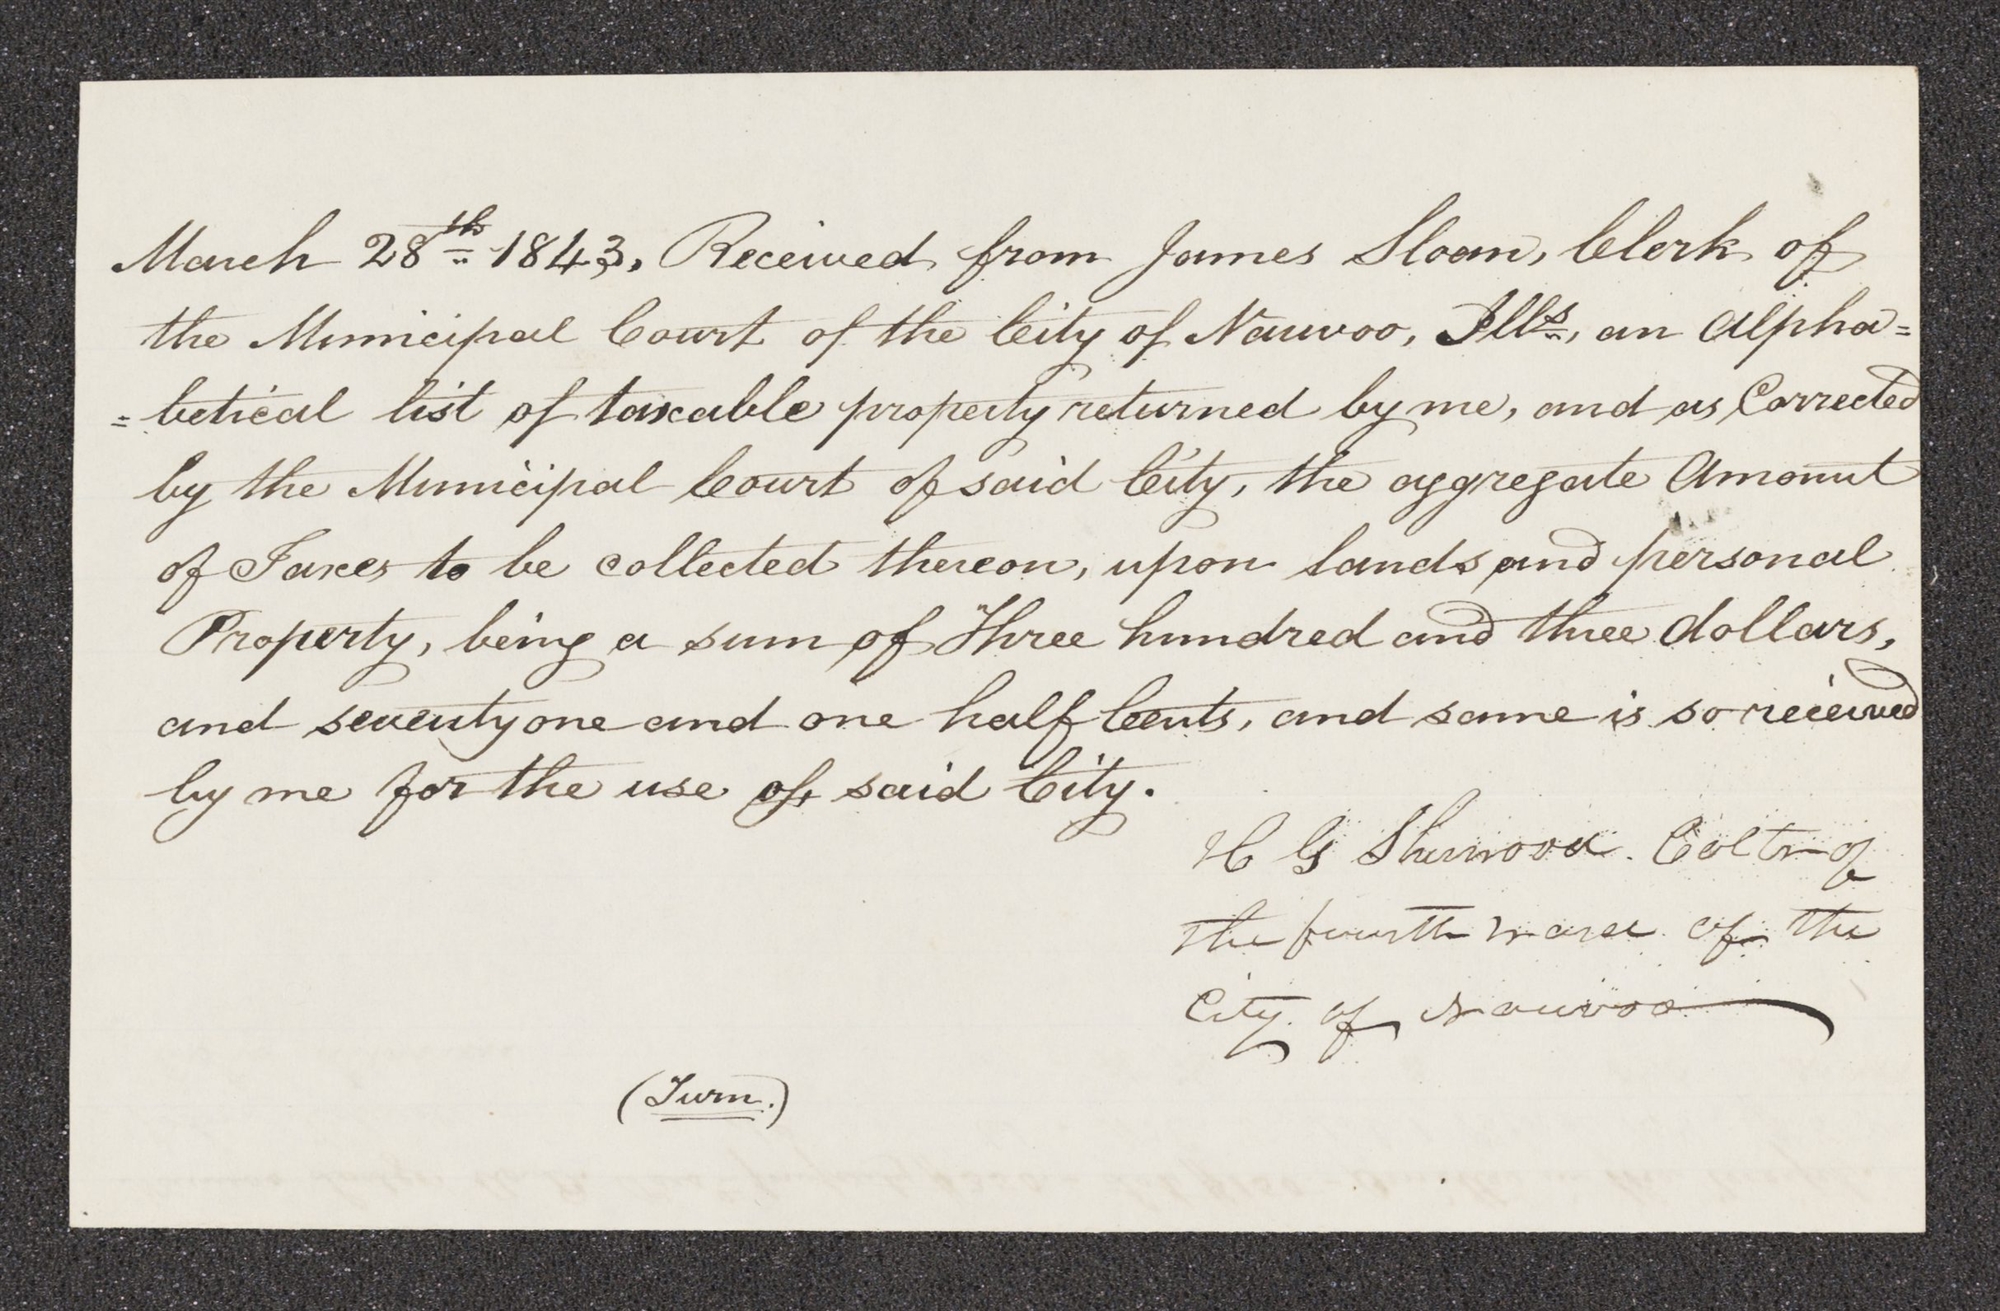 March 28th 1843, Received from James Sloan, Clerk of
the Municipal Court of the City of Nauvoo, Ills, an Alpha=
=betical list of taxable property returned by me, and as Corrected
by the Municipal Court of said City, the aggregate Amount
of Taxes to be collected thereon, upon lands and personal
Property, being a sum of Three hundred and three dollars,
and seventy one and one half Cents, and same is so received
by me for the use of said City.
H G Sherwood. Coltr of
the fourth ward of the
City of Nauvoo
(Turn.)